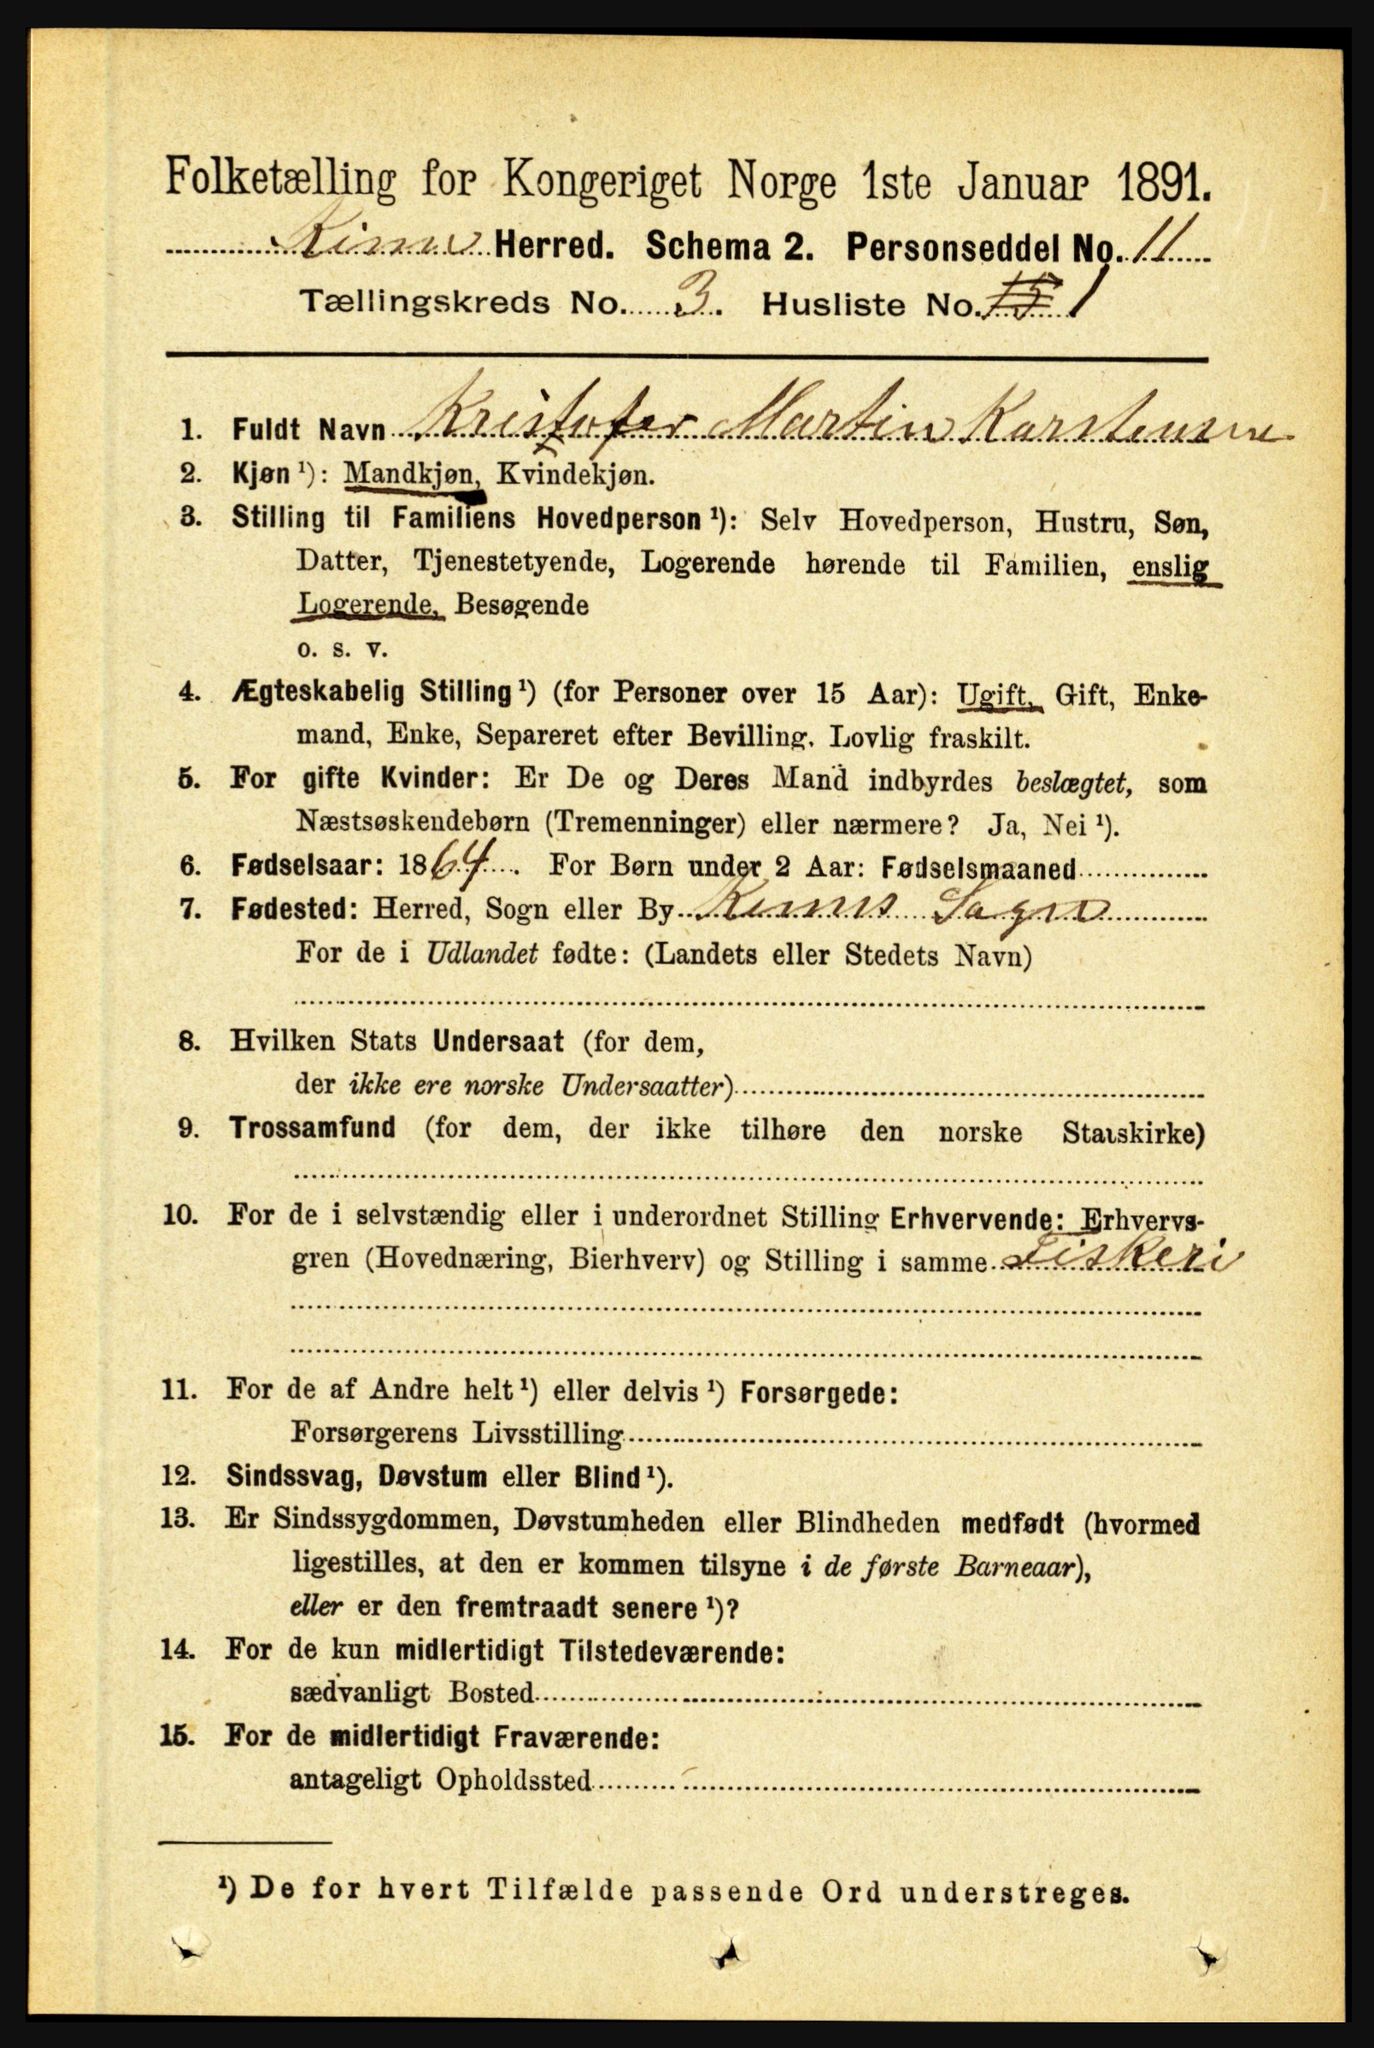 Folketælling for Kongeriget Norge 1ste Januar 1891.
Kinn Herred. Schema 2. Personseddel No. 11
Tællingskreds No. 3. Husliste No. 1
1. Fuldt Navn Kristofer Martin Karstensen
2. Kjøn ¹): Mandkjøn, Kvindekjøn.
3. Stilling til Familiens Hovedperson ¹): Selv Hovedperson, Hustru, Søn,
Datter, Tjenestetyende, Logerende hørende til Familien, enslig
Logerende, Besøgende
o. s. v.
4. Ægteskabelig Stilling ¹) (for Personer over 15 Aar): Ugift, Gift, Enke-
mand, Enke, Separeret efter Bevilling. Lovlig fraskilt.
5. For gifte Kvinder: Er De og Deres Mand indbyrdes beslægtet, som
Næstsøskendebørn (Tremenninger) eller nærmere? Ja, Nei ¹).
6. Fødselsaar: 1864. For Børn under 2 Aar: Fødselsmaaned
7. Fødested: Herred, Sogn eller By Kinns Sogn
For de i Udlandet fødte: (Landets eller Stedets Navn)
8. Hvilken Stats Undersaat (for dem,
der ikke ere norske Undersaatter)
9. Trossamfund (for dem, der ikke tilhøre den norske Statskirke)
10. For de i selvstændig eller i underordnet Stilling Erhvervende: Erhvervs-
gren (Hovednæring, Bierhverv) og Stilling i samme Fiskeri
11. For de af Andre helt ¹) eller delvis ¹) Forsørgede:
Forsørgerens Livsstilling
12. Sindssvag, Døvstum eller Blind ¹).
13. Er Sindssygdommen, Døvstumheden eller Blindheden medfødt (hvormed
ligestilles, at den er kommen tilsyne i de første Barneaar),
eller er den fremtraadt senere ¹)?
14. For de kun midlertidigt Tilstedeværende:
sædvanligt Bosted
15. For de midlertidigt Fraværende:
antageligt Opholdssted
¹) De for hvert Tilfælde passende Ord understreges.